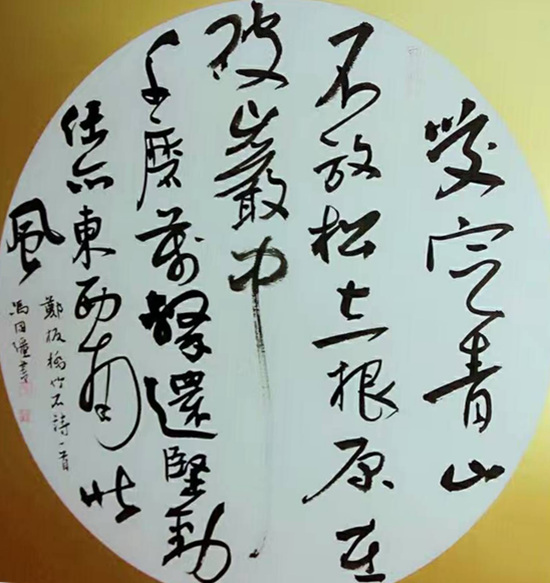 咬定青山
不放松立根原在
破巖中
千磨萬擊還堅勁
任尔東西南北
風
鄭板橋竹石詩一首
馮国書